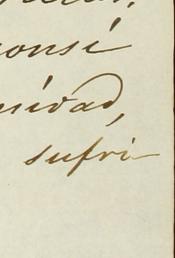 consi
nidad,
sufri-